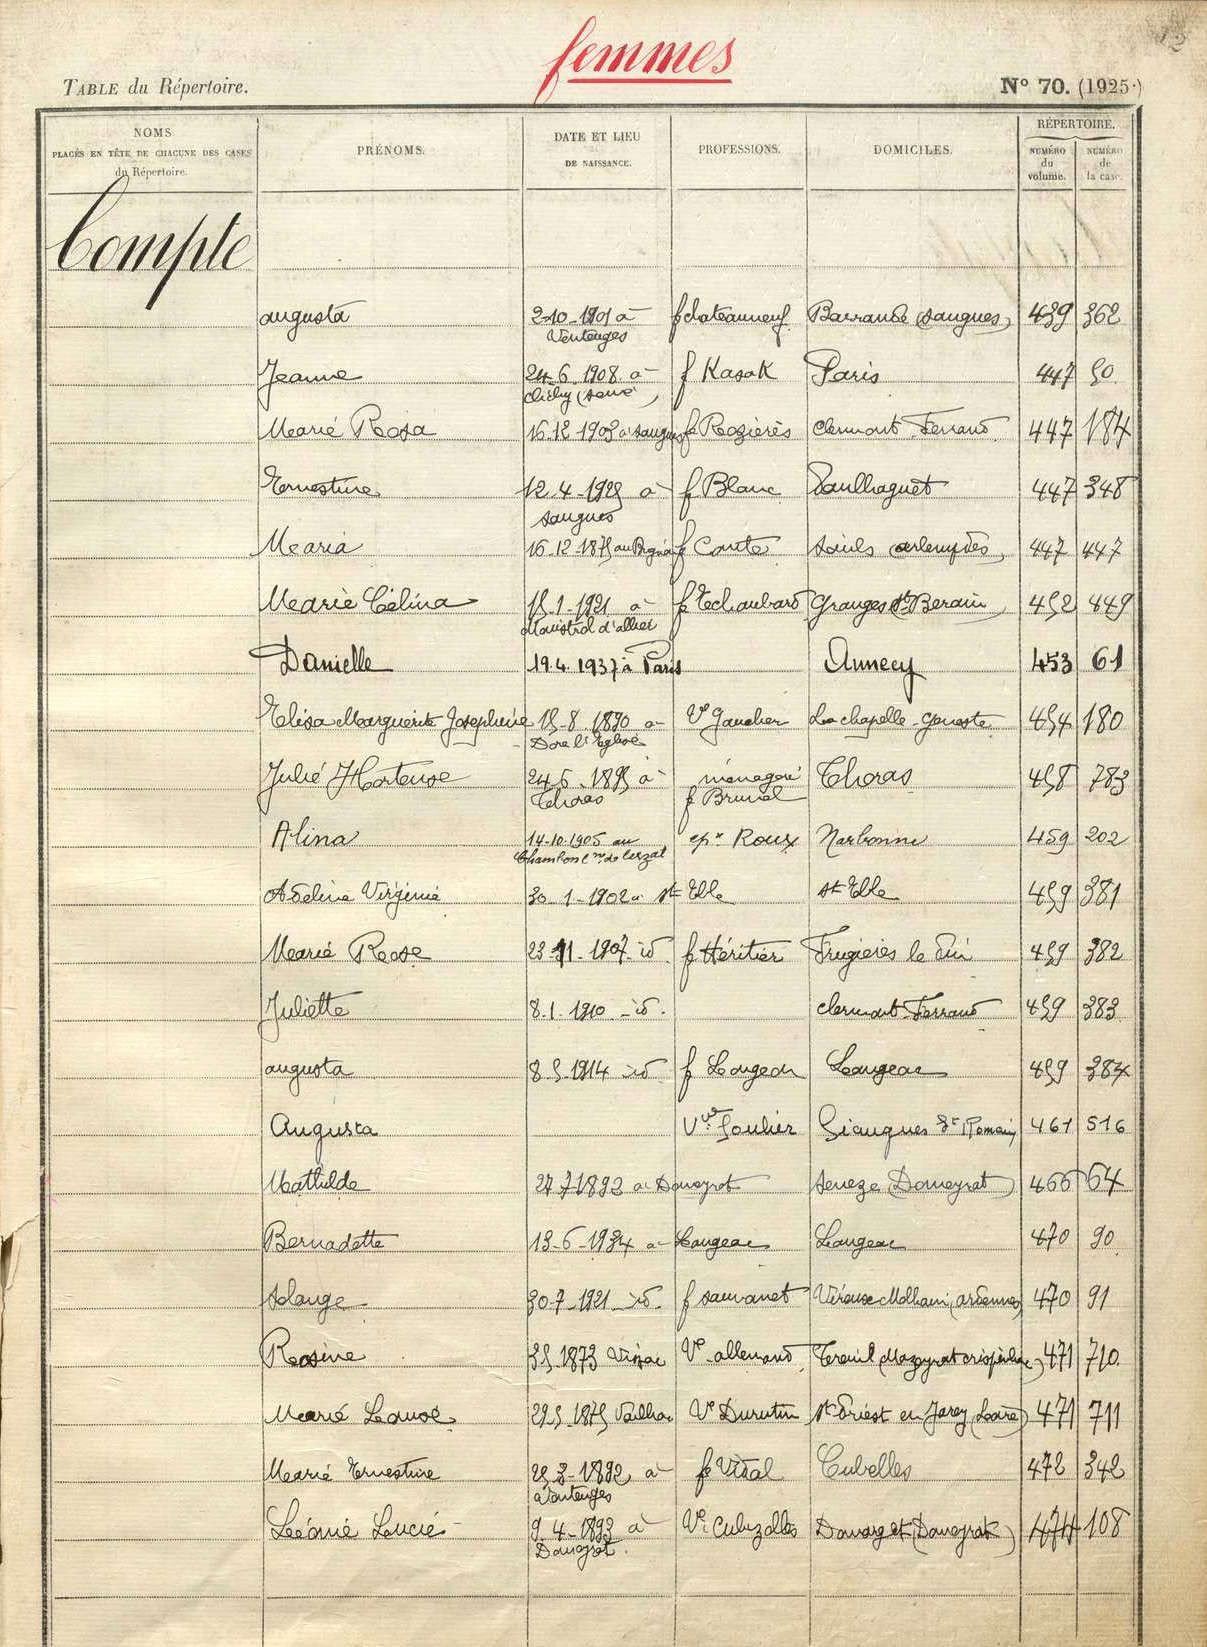 femmes
TABLE du Répertoire.
N° 70. (1925.)
NOMS
PLACÉS EN TÊTE DE CHACUNE DES CASES
du Répertoire.
PRÉNOMS.
DATE ET LIEU
DE NAISSANCE.
PROFESSIONS.
DOMICILES.
RÉPERTOIRE.
NUMÉRO du volume.
NUMÉRO de la case.
Compte
augusta 2-10-1901 à f chateauneuf Barrande (saugues) 439 362
Venteuges
Jeanne 24.6.1908 à f Kasak Paris 447 50
Clichy (seine)
Marie Rosa 16.12 1909 à saugues f Rozières clermont-Ferrand 447 184
Ernestine 12.4-1925 à f Blanc Paulhaguet 447 348
saugues
Maria 16-12-1875 au f Conte arlempdes 447 447
Marie Célina 15.1-1921 à f Echaubard Granges (St Berain) 452 449
Monistrol d'allier
Danielle 19.4.1937 à Paris Annecy 453 61
Elisa Marguerite Josephine 15-8-1890 à Ve Gaucher La chapelle-Geneste 454 180
Dore l'Eglise
Julie Hortense 24-5-1895 à ménagère Thoras 458 783
Thoras f Brunel
Alina 14-10-1905 au epx Roux Narbonne 459 202
Chambon cne de Cerzat
Adeline Virginie 30-1-1902 à st Elle st Elle 459 381
Marie Rose 23-11-1907-id f Héritier Frugières le Pin 459 382
Juliette 8.1.1910-id. clermont-Ferrand 459 383
augusta 8.5.1914 id f Langeac 459 384
Augusta Vve Soulier Siaugues St Romain 461 516
Mathilde 27.7.1892 à Domeyrat seneze (Domeyrat) 466 64
Bernadette 13-6-1934 à Langeac Langeac 470 90
solange 30-7-1921 id. f sauvanet Vireux Molhain (ardennes) 470 91
Rosine 3.5.1873 Vissac Ve allemand Treuil (Mazeyrat crispinhac) 471 710
Marie Louise 29.5.1875 Ve Durutin st Priest en Jarey (Loire) 471 711
Marie Ernestine 25.3-1892 à f Vidal Cubelles 472 342
à Venteuges
Léonie Lucie 9-4-1893 à Ve Cubizolles (Domeyrat) 474 108
Domeyrat.